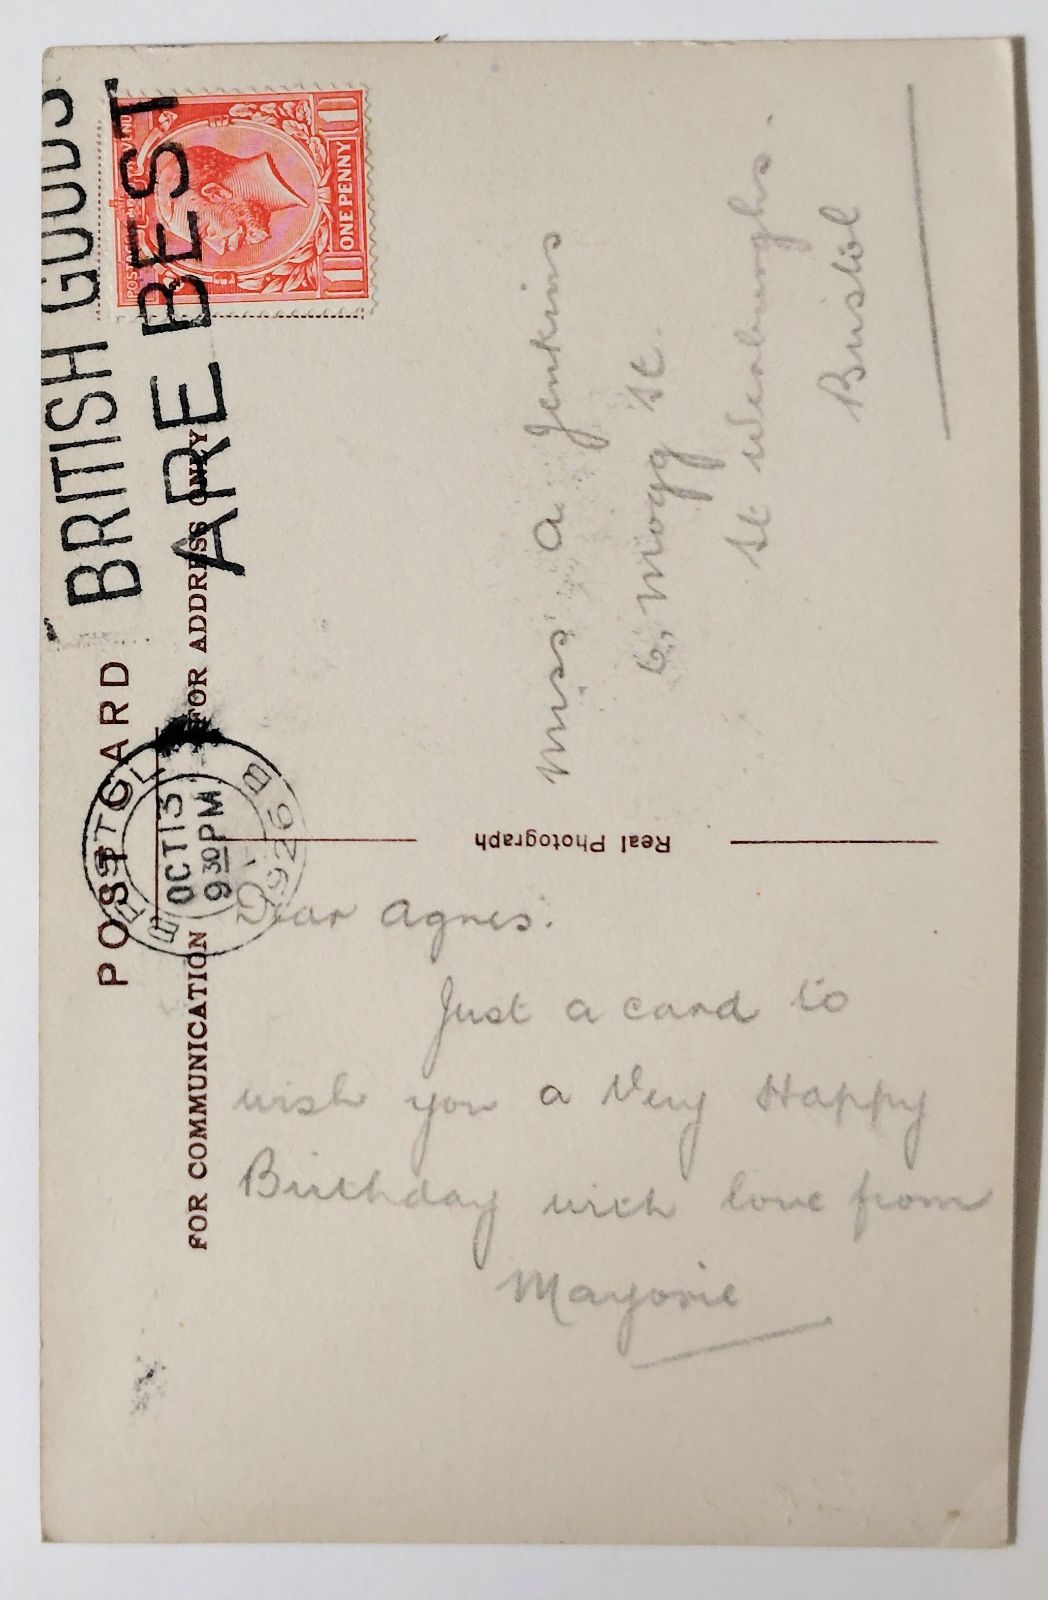 BRITISH GOODS
ARE BEST
POSTAGE REVENUE
1 ONE PENNY 1
POST CARD
FOR COMMUNICATION
FOR ADDRESS ONLY
BRISTOL
OCT 13
9 30 PM
1926 B
Real Photograph
Dear Agnes.
Just a card to
wish you a Very Happy
Birthday with love from
Marjorie
Miss A Jenkins
6, Mogg St.
St Werburghs.
Bristol